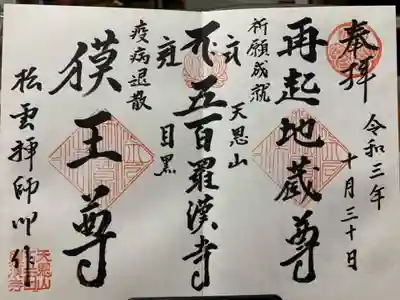 奉拝
令和三年
十月三十日
再起地蔵尊
祈願成就
天恩山
五百羅漢寺
目黒
疫病退散
獏王尊
松雲禅師御作